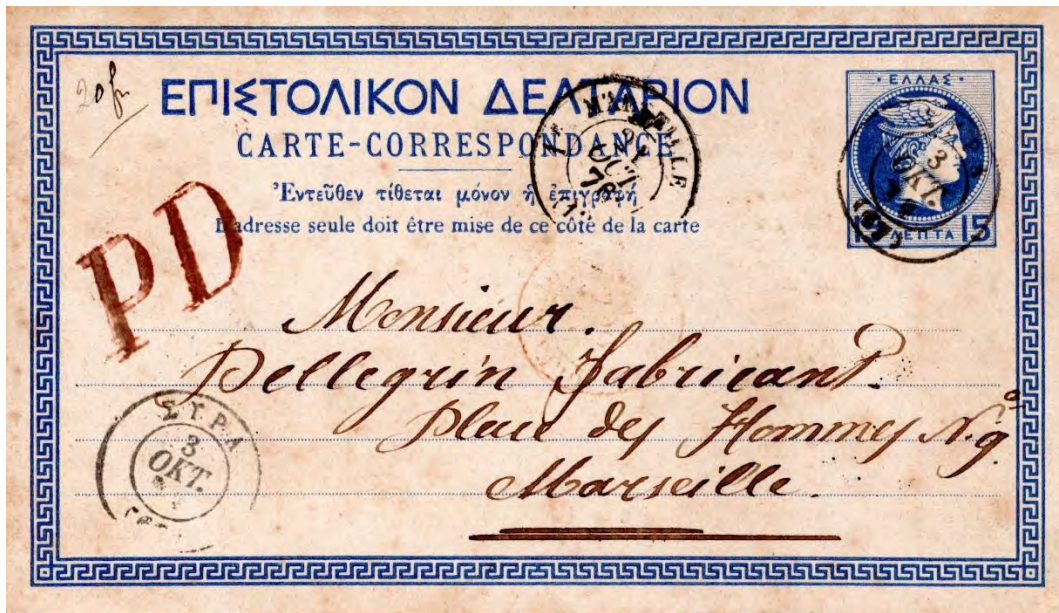 20 f
ΕΠΙΣΤΟΛΙΚΟΝ ΔΕΛΤΑΡΙΟΝ
CARTE-CORRESPONDANCE
Ἐντεῦθεν τίθεται μόνον ἡ ἐπιγραφή
L'adresse seule doit être mise de ce côté de la carte
·ΕΛΛΑΣ·
15 ΛΕΠΤΑ 15
ΣΥΡΑ
3
ΟΚΤ.
MARSEILLE
OCT
PD
Monsieur.
Pellegrin fabricant.
Place des Hommes
Marseille.
ΣΥΡΑ
3
ΟΚΤ.